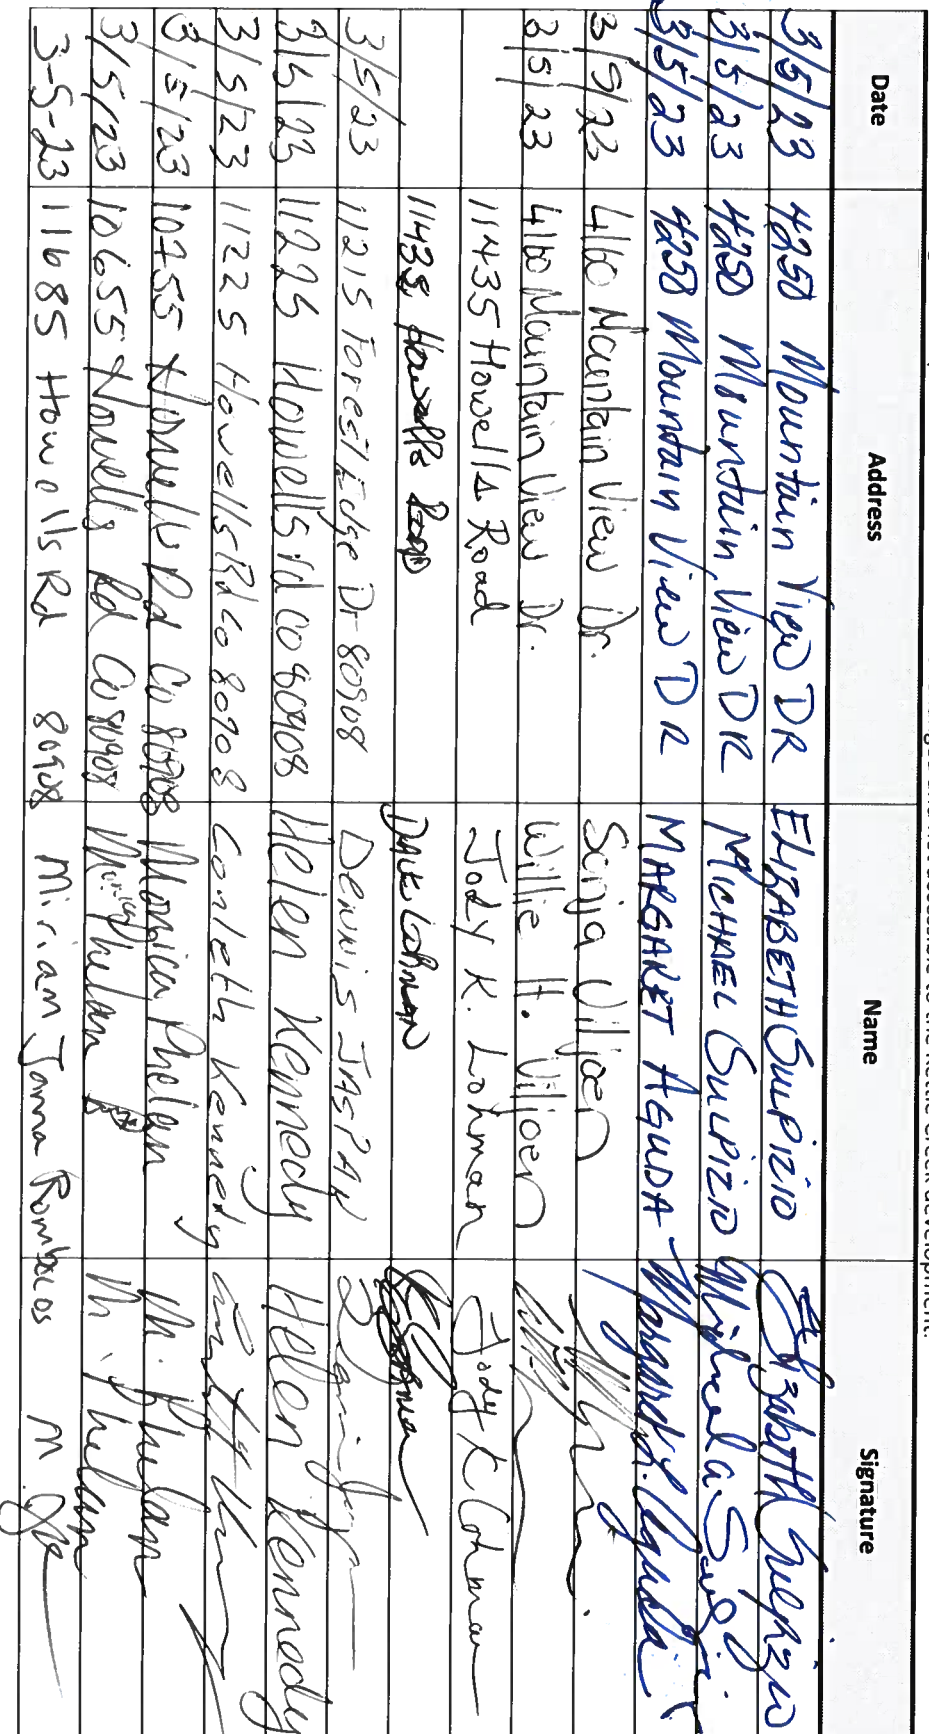 Date Address Name Signature
3/5/23 4250 Mountain View DR ELIZABETH SULPIZIO Elizabeth Sulpizio
3/5/23 4250 Mountain View DR MICHAEL SULPIZIO Michael a
3/5/23 4250 Mountain View DR MARGARET AGUDA Margaret Aguda
3/5/23 4160 Mountain View Dr. Sonja Viljoen
3/5/23 4160 Mountain View Dr. Willie H. Viljoen
11435 Howells Road Jody K. Lohman Jody K Lohman
11435 Howells Road DALE LOHMAN
3/5/23 11215 Forest Edge Dr 80908 DENNIS JASPAN
3/5/23 11225 Howells rd CO 80908 Helen Kennedy Helen Kennedy
3/5/23 11225 Howells Rd Co 80908 Conleth Kennedy
3/5/23 10755 Howells Rd Co 80908 Monica Phelan M. Phelan
3/5/23 10655 Howells Rd Co 80908 Phelan M. Phelan
3-5-23 11685 Howells Rd 80908 Miriam Rombcos M